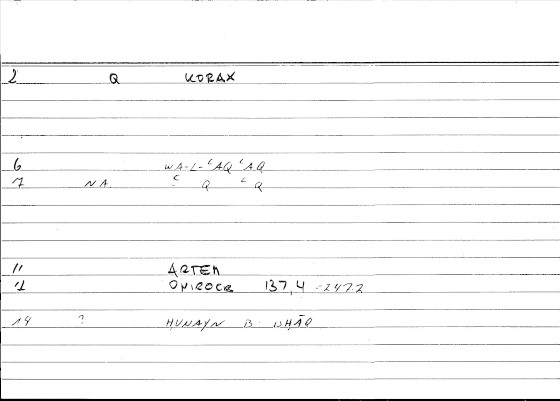 2 Q KORAX
6 WA-L-ʿAQʿAQ
7 NA. ʿ Q ʿ Q
11 ARTEM
ONIROCR 137,4 - 247.2
14 ? HUNAYN B.